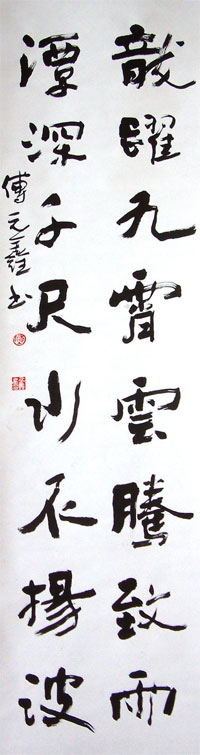 龍躍九霄雲騰致雨
潭深千尺水不揚波
傅元鑫书